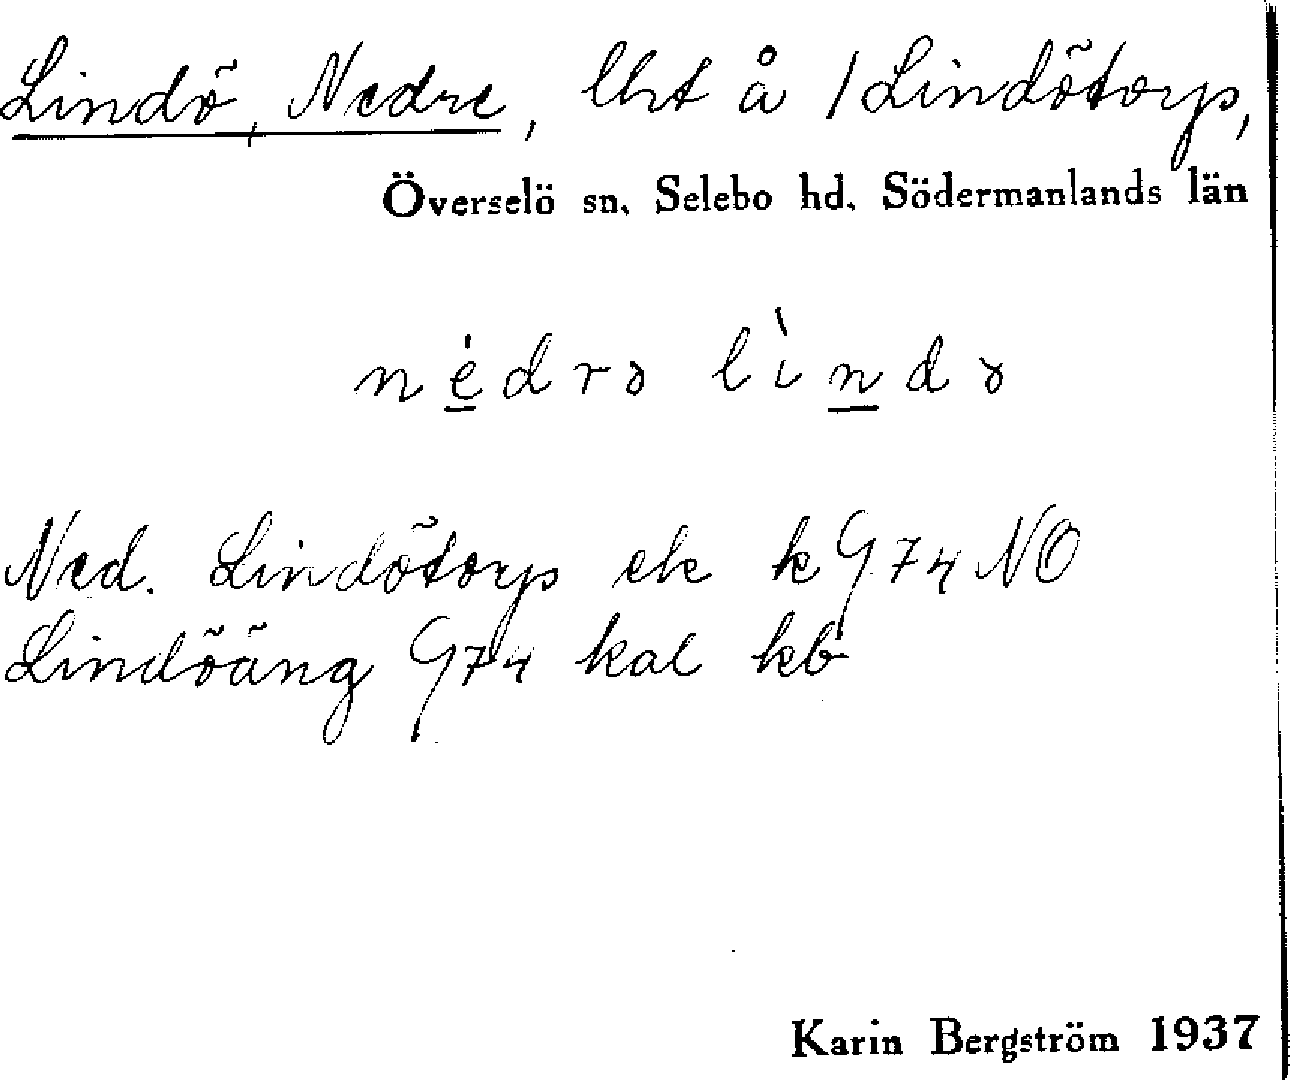 Lindö, Nedre, lht å /Lindötorp,
Överselö sn. Selebo hd. Södermanlands län
nèdrə lìndə
Ned. Lindötorp ek k G74 NO
Lindöäng G74 kal kb
Karin Bergström 1937